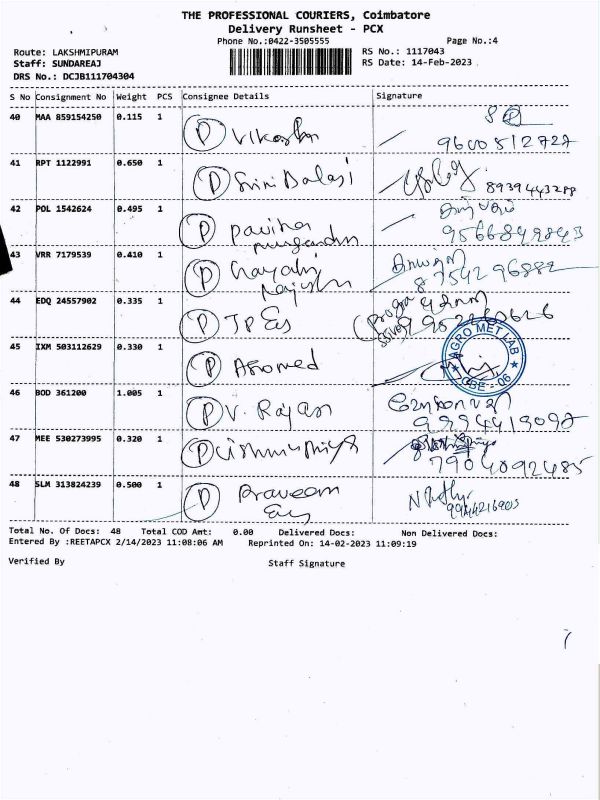 THE PROFESSIONAL COURIERS, Coimbatore
Delivery Runsheet - PCX
Phone No.:0422-3505555 Page No.:4
Route: LAKSHMIPURAM RS No.: 1117043
Staff: SUNDAREAJ RS Date: 14-Feb-2023
DRS No.: DCJB111704304
S No Consignment No Weight PCS Consignee Details Signature
40 MAA 859154250 0.115 1 P Vikash
9600512727
41 RPT 1122991 0.650 1 P Srini Balaji 8939443288
42 POL 1542624 0.495 1 P Pavitha
9566849843
43 VRR 7179539 0.410 1 P Gayatri
8754296882
44 EDQ 24557902 0.335 1 P JP
45 IXM 503112629 0.330 1 P AGROMET LAB CBE - 06
46 BOD 361200 1.005 1 P V. Rajan
9994419097
47 MEE 530273995 0.320 1 P
7904092485
48 SLM 313824239 0.500 1 P Praveen
Total No. Of Docs: 48 Total COD Amt: 0.00 Delivered Docs: Non Delivered Docs:
Entered By :REETAPCX 2/14/2023 11:08:06 AM Reprinted On: 14-02-2023 11:09:19
Verified By Staff Signature